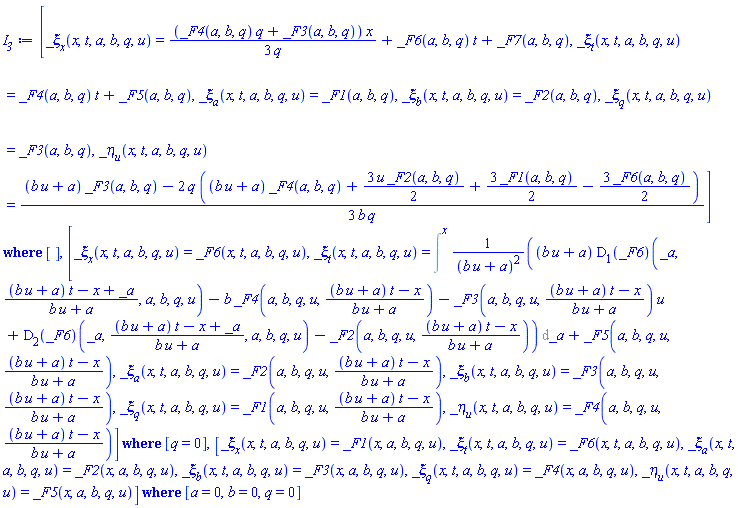 I₃ := [ _ξₓ(x, t, a, b, q, u) = ((_F4(a, b, q) q + _F3(a, b, q)) x)/(3 q) + _F6(a, b, q) t + _F7(a, b, q), _ξₜ(x, t, a, b, q, u)
= _F4(a, b, q) t + _F5(a, b, q), _ξₐ(x, t, a, b, q, u) = _F1(a, b, q), _ξ_b(x, t, a, b, q, u) = _F2(a, b, q), _ξ_q(x, t, a, b, q, u)
= _F3(a, b, q), _η_u(x, t, a, b, q, u)
= ((b u + a) _F3(a, b, q) − 2 q ((b u + a) _F4(a, b, q) + (3 u _F2(a, b, q))/2 + (3 _F1(a, b, q))/2 − (3 _F6(a, b, q))/2))/(3 b q) ]
where [ ], [ _ξₓ(x, t, a, b, q, u) = _F6(x, t, a, b, q, u), _ξₜ(x, t, a, b, q, u) = ∫^x 1/(b u + a)² ((b u + a) D₁(_F6)(_a,
((b u + a) t − x + _a)/(b u + a), a, b, q, u) − b _F4(a, b, q, u, ((b u + a) t − x)/(b u + a)) − _F3(a, b, q, u, ((b u + a) t − x)/(b u + a)) u
+ D₂(_F6)(_a, ((b u + a) t − x + _a)/(b u + a), a, b, q, u) − _F2(a, b, q, u, ((b u + a) t − x)/(b u + a))) d_a + _F5(a, b, q, u,
((b u + a) t − x)/(b u + a)), _ξₐ(x, t, a, b, q, u) = _F2(a, b, q, u, ((b u + a) t − x)/(b u + a)), _ξ_b(x, t, a, b, q, u) = _F3(a, b, q, u,
((b u + a) t − x)/(b u + a)), _ξ_q(x, t, a, b, q, u) = _F1(a, b, q, u, ((b u + a) t − x)/(b u + a)), _η_u(x, t, a, b, q, u) = _F4(a, b, q, u,
((b u + a) t − x)/(b u + a)) ] where [q = 0], [ _ξₓ(x, t, a, b, q, u) = _F1(x, a, b, q, u), _ξₜ(x, t, a, b, q, u) = _F6(x, t, a, b, q, u), _ξₐ(x, t,
a, b, q, u) = _F2(x, a, b, q, u), _ξ_b(x, t, a, b, q, u) = _F3(x, a, b, q, u), _ξ_q(x, t, a, b, q, u) = _F4(x, a, b, q, u), _η_u(x, t, a, b, q,
u) = _F5(x, a, b, q, u) ] where [a = 0, b = 0, q = 0]